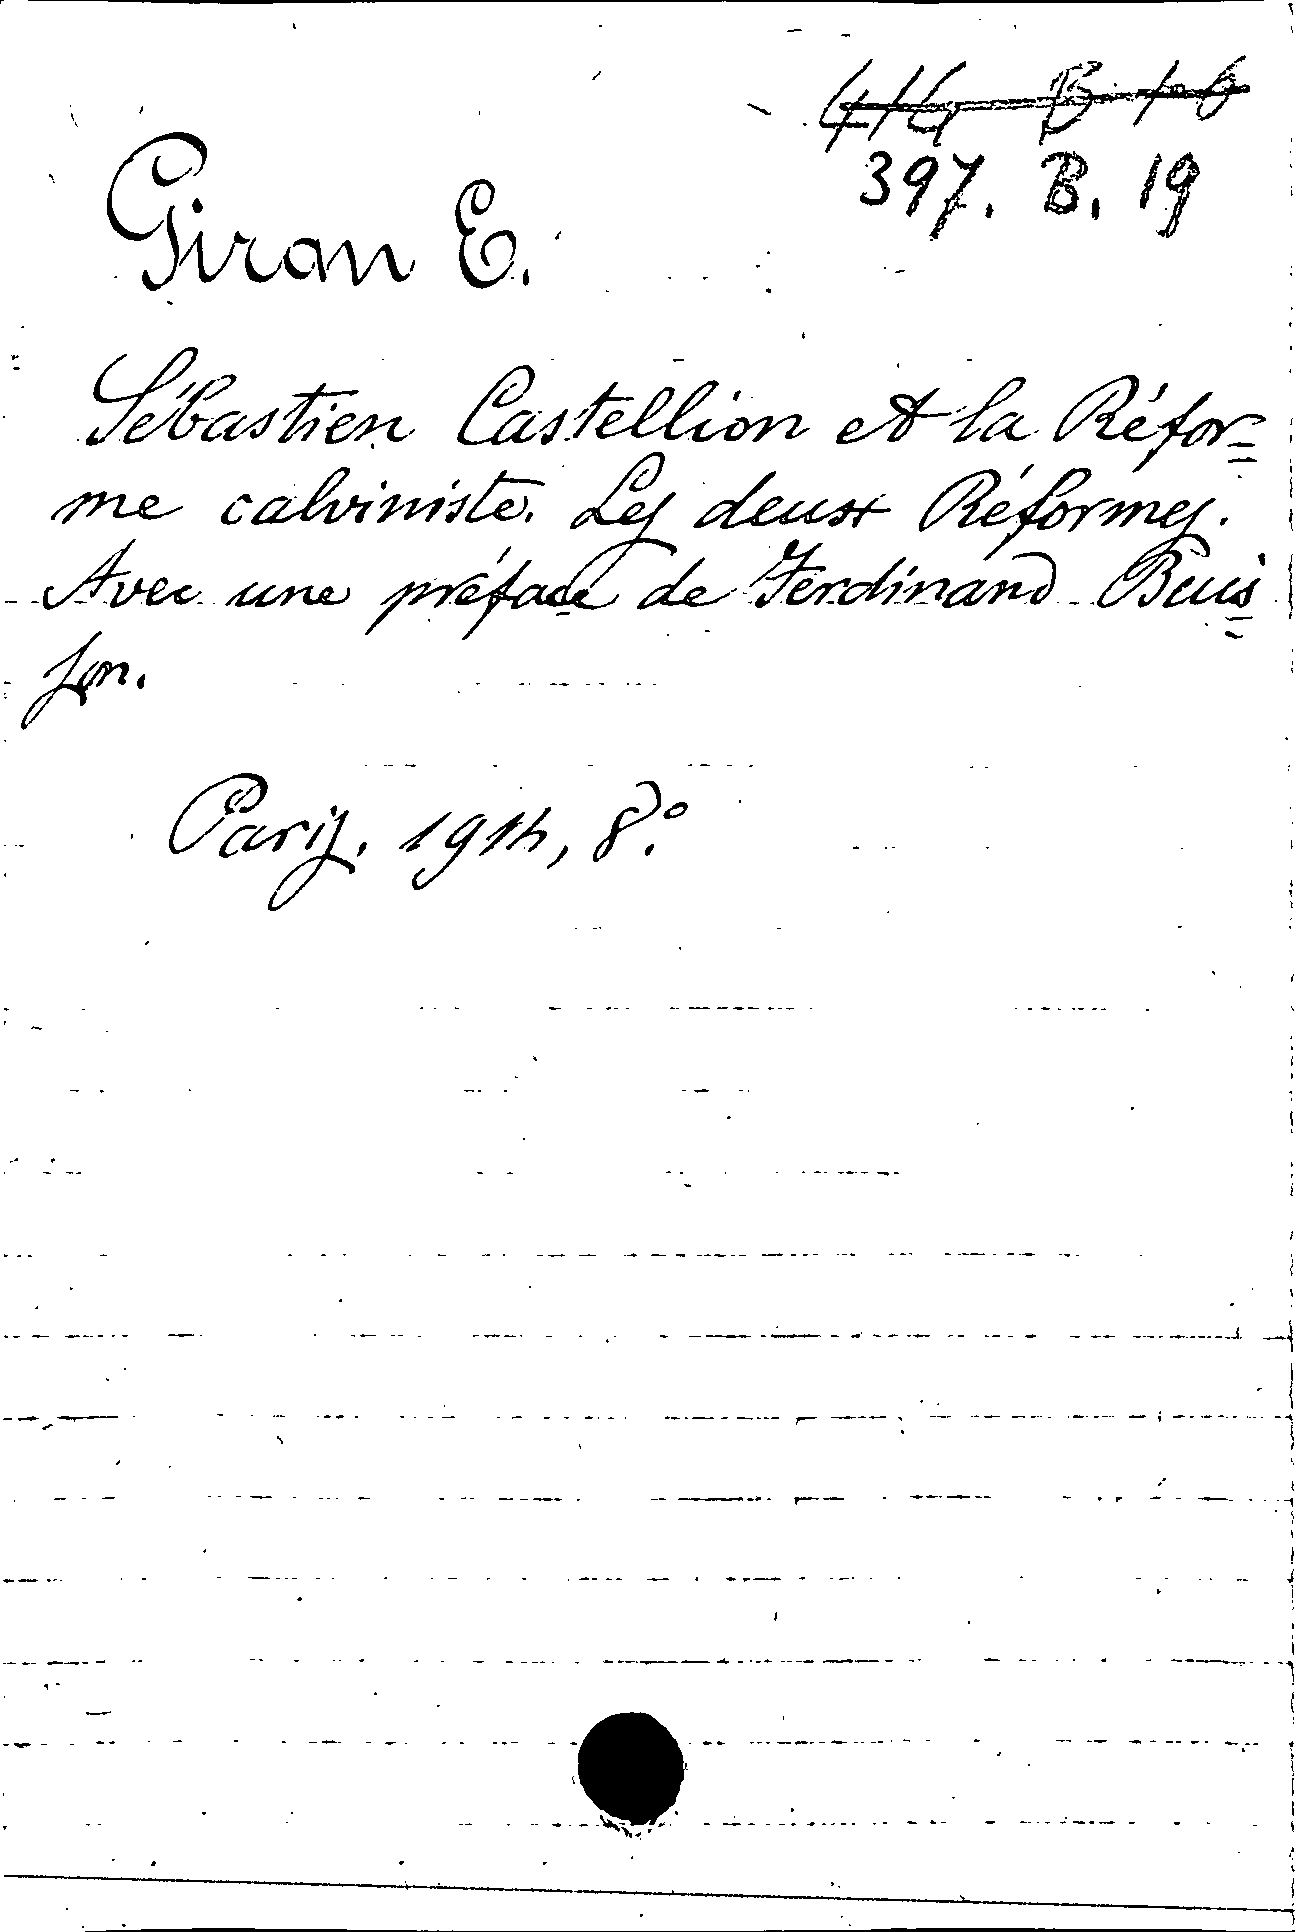 397. B. 19
Giran E.
Sébastien Castellion et la Réfor=
me calviniste. Les deux Réformes.
Avec une préface de Ferdinand Buis=
son.
Paris. 1914, 8.°